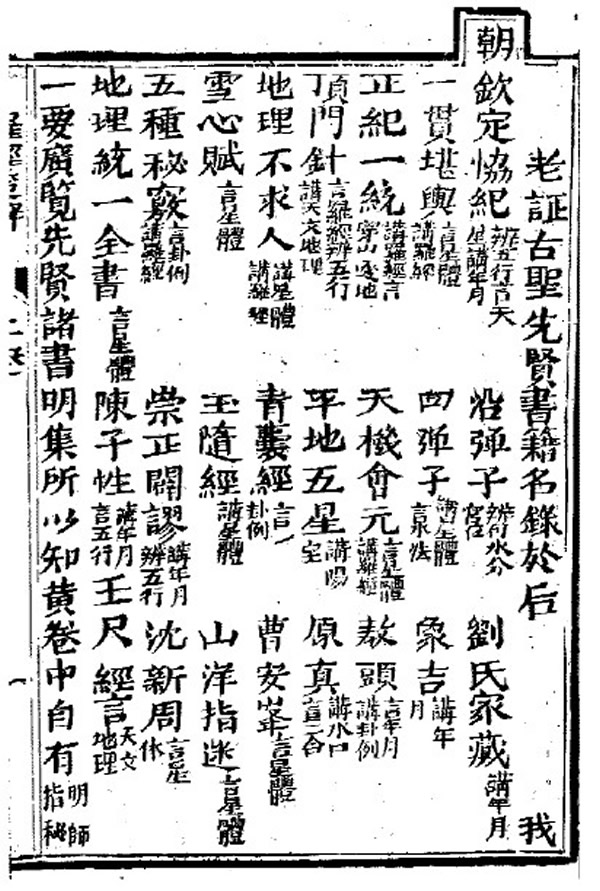 老証古聖先賢書籍名錄於后 我
朝欽定恊紀 辨五行言天星講年月 沿弹子 劉氏家藏 講年月
一貫堪輿 言星體講羅經 四弹子 象吉 講年月
正紀一統 講羅經言穿山透地 天機會元 言星體講羅經 敖頭 言年月講卦例
頂門針 言羅經辨五行講天文地理 平地五星 講陽宅 原真 講水口言三合
地理不求人 講星體講羅經 青囊經 言卦例 曹安峯 言星體
雪心賦 言星體 玉隨經 講星體 山洋指迷 言星體
五種秘竅 言卦例講羅經 崇正闢謬 講年月辨五行 沈新周 言星体
地理統一全書 言星體 陳子性 講年月言五行 王尺經 言天文地理
一要廣覽先賢諸書明集所以知黄卷中自有 明師指秘